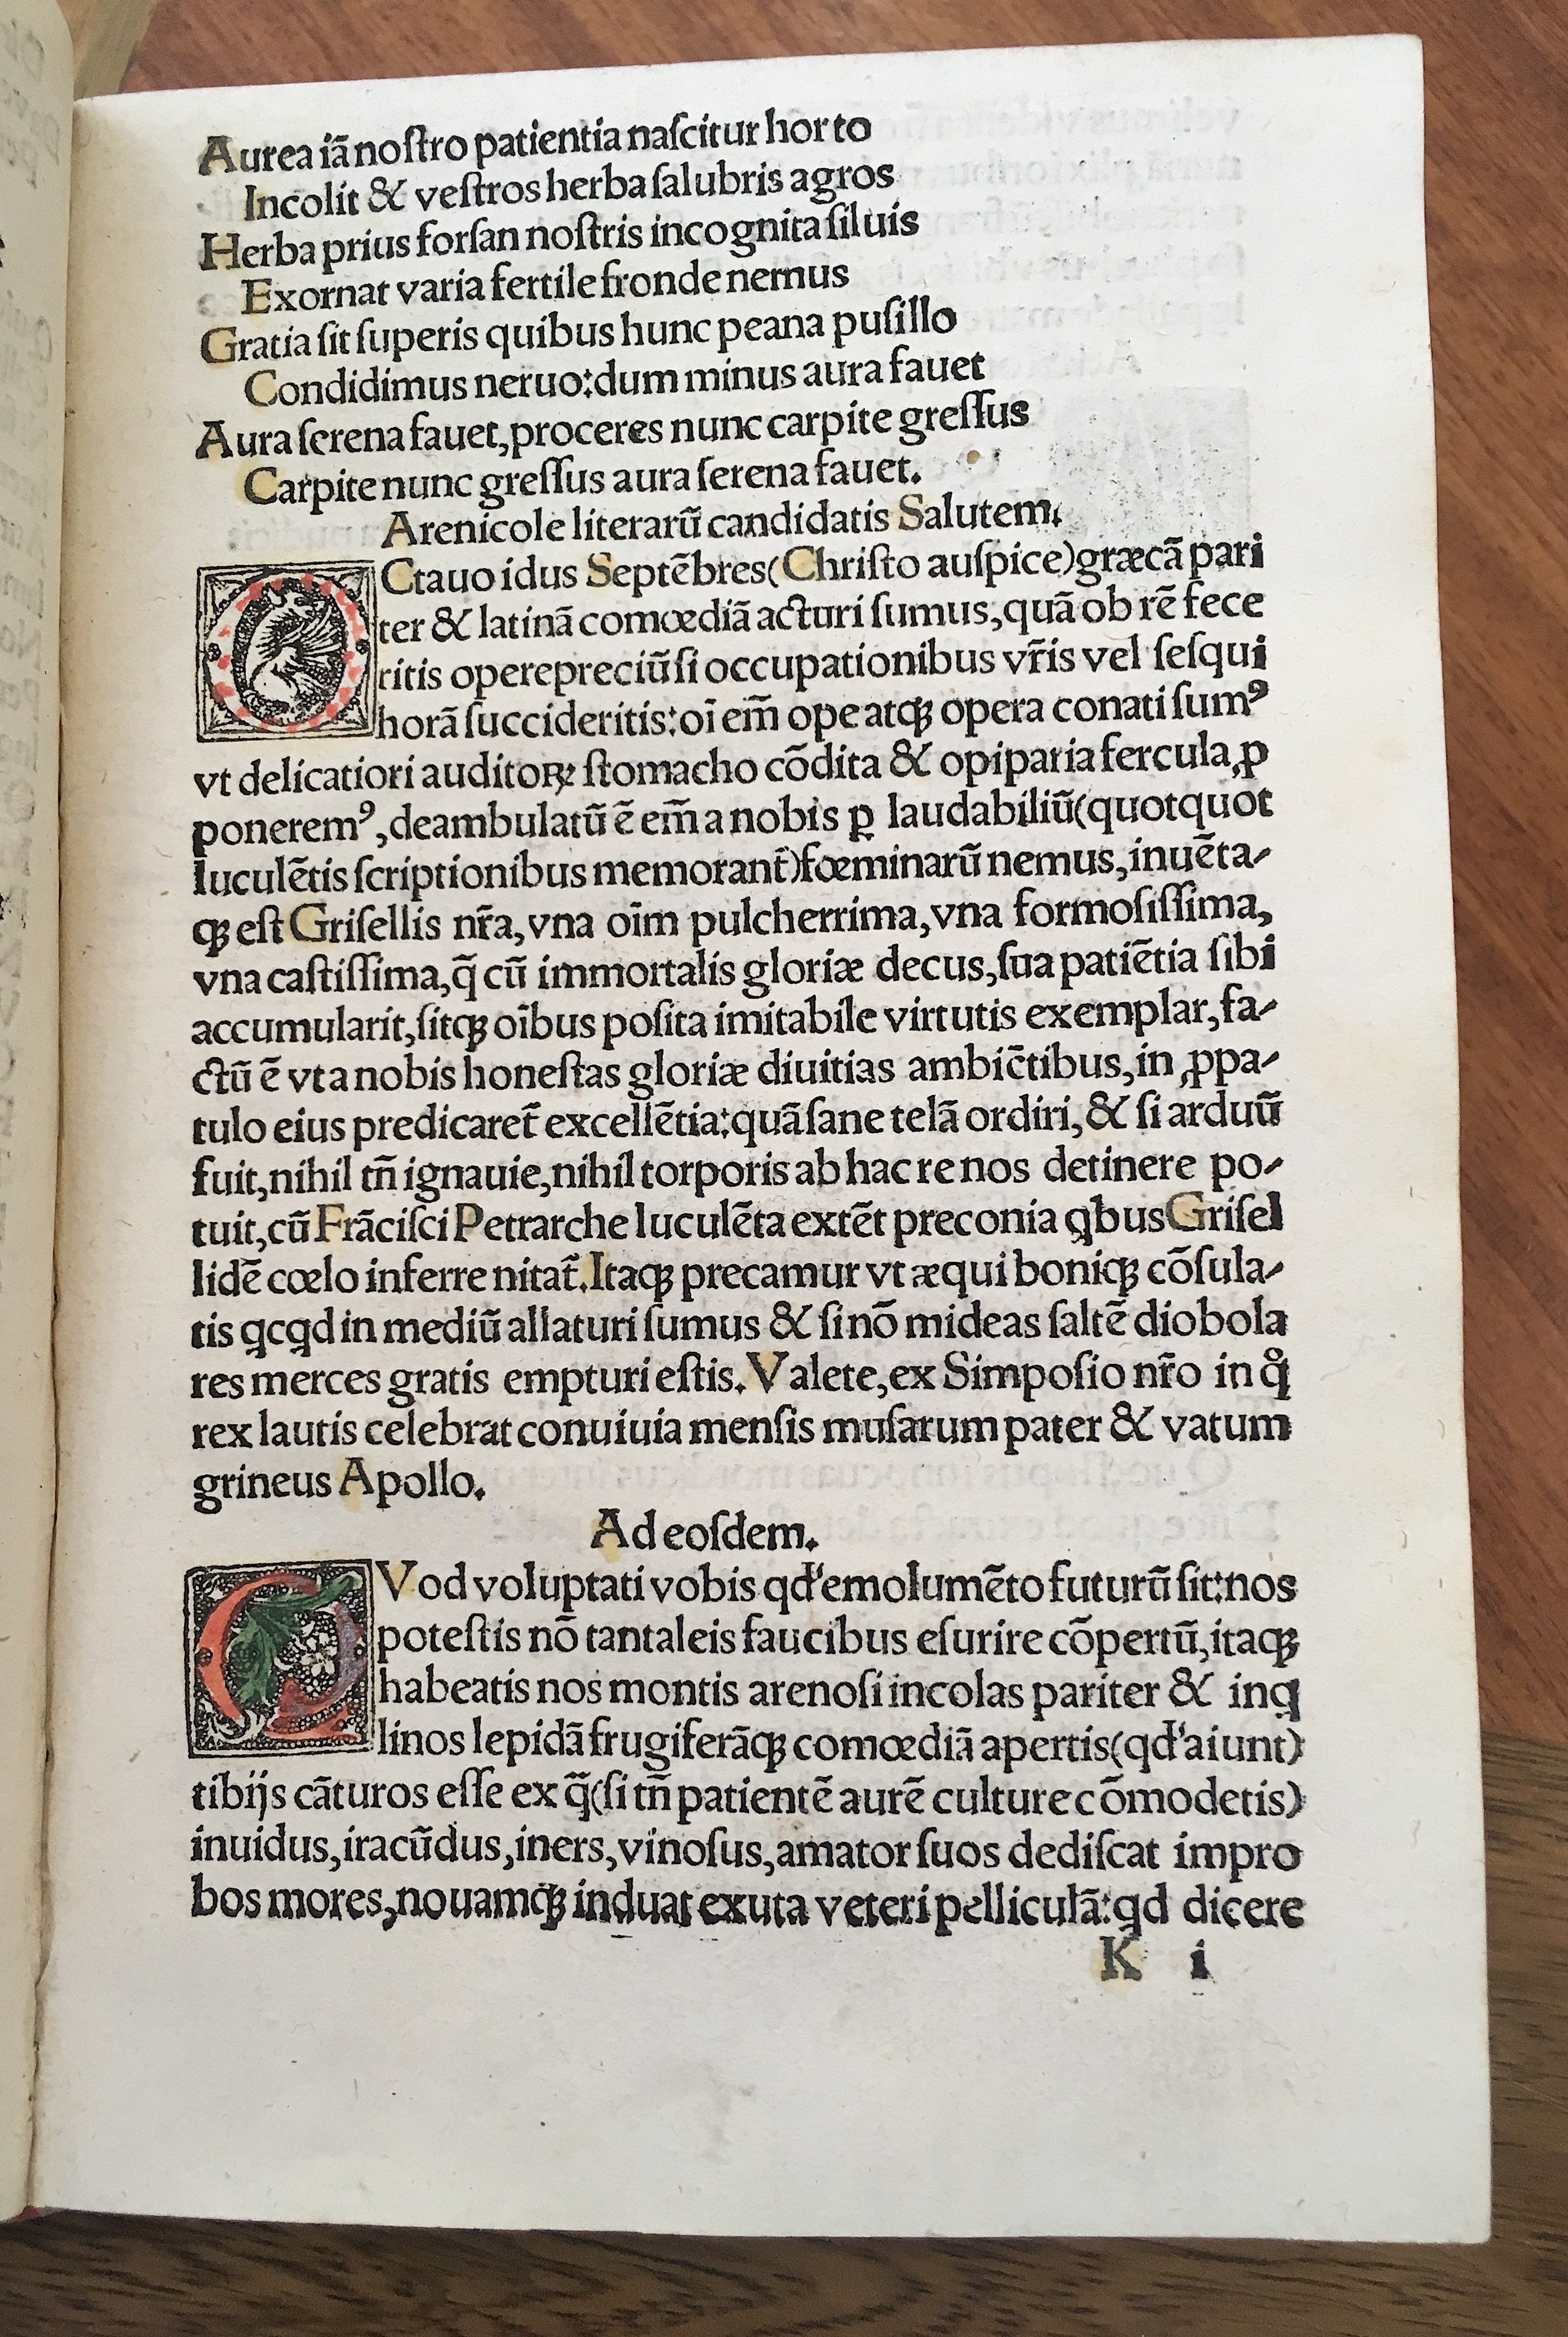 Aurea iā noſtro patientia naſcitur horto
Incolit & veſtros herba ſalubris agros
Herba prius forſan noſtris incognita ſiluis
Exornat varia fertile fronde nemus
Gratia ſit ſuperis quibus hunc peana puſillo
Condidimus neruo:dum minus aura fauet
Aura ſerena fauet,proceres nunc carpite greſſus
Carpite nunc greſſus aura ſerena fauet.
Arenicole literarū candidatis Salutem.
OCtauo idus Septēbres(Chriſto auſpice)græcā pari
ter & latinā comœdiā acturi ſumus,quā ob rē fece
ritis operepreciū ſi occupationibus vr̄is vel ſeſqui
horā ſuccideritis:oī em̄ ope atqꝫ opera conati ſumꝰ
vt delicatiori auditoꝝ ſtomacho cōdita & opiparia fercula,ꝓ
poneremꝰ,deambulatū ē em̄ a nobis ꝑ laudabiliū(quotquot
luculētis ſcriptionibus memorant̄)fœminarū nemus,inuēta-
qꝫ eſt Griſellis nr̄a,vna oīm pulcherrima,vna formoſiſſima,
vna caſtiſſima,q̄ cū immortalis gloriæ decus,ſua patiētia ſibi
accumularit,ſitqꝫ oībus poſita imitabile virtutis exemplar,fa-
ctū ē vt a nobis honeſtas gloriæ diuitias ambic̄tibus,in ꝓpa-
tulo eius predicaret̄ excellētia:quā ſane telā ordiri,& ſi arduū
fuit,nihil tn̄ ignauie,nihil torporis ab hac re nos detinere po-
tuit,cū Frāciſci Petrarche luculēta extēt preconia ꝗbus Griſel
lidē cœlo inferre nitat̄.Itaqꝫ precamur vt æqui boniqꝫ cōſula-
tis ꝗcꝗd in mediū allaturi ſumus & ſi nō mideas ſaltē diobola
res merces gratis empturi eſtis.Valete,ex Simpoſio nr̄o in qͦ
rex lautis celebrat conuiuia menſis muſarum pater & vatum
grineus Apollo.
Ad eoſdem.
QVod voluptati vobis qd̓ emolumēto futurū ſit:nos
poteſtis nō tantaleis faucibus eſurire cōpertū,itaqꝫ
habeatis nos montis arenoſi incolas pariter & inꝗ
linos lepidā frugiferāqꝫ comœdiā apertis(qd̓ aiunt)
tibijs cāturos eſſe ex q̄(ſi tn̄ patientē aurē culture cōmodetis)
inuidus,iracūdus,iners,vinoſus,amator ſuos dediſcat impro
bos mores,nouamqꝫ induat exuta veteri pelliculā:ꝗd dicere
K i